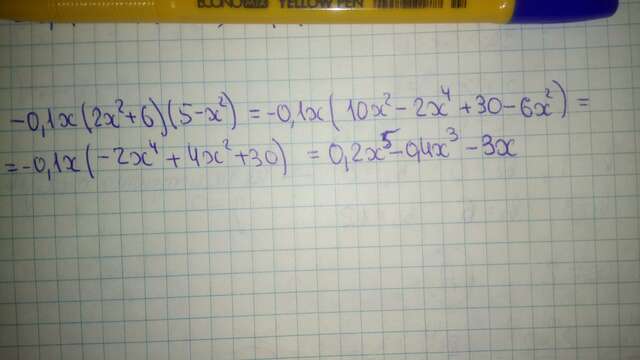 ECONOMIX YELLOW PEN
-0,1x(2x²+6)(5-x²) = -0,1x(10x²-2x⁴+30-6x²) =
=-0,1x(-2x⁴+4x²+30) = 0,2x⁵-0,4x³-3x